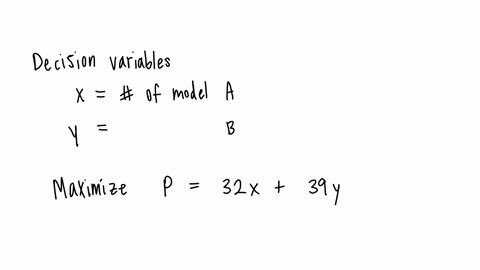 Decision variables
x = # of model A
y = B
Maximize P = 32x + 39y